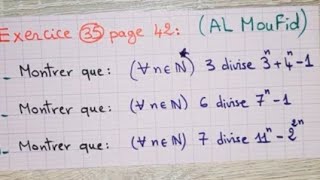 Exercice 35 page 42: (AL Moufid)
- Montrer que: (∀n∈ℕ*) 3 divise 3ⁿ+4ⁿ-1
- Montrer que: (∀n∈ℕ) 6 divise 7ⁿ-1
- Montrer que: (∀n∈ℕ) 7 divise 11ⁿ-2²ⁿ